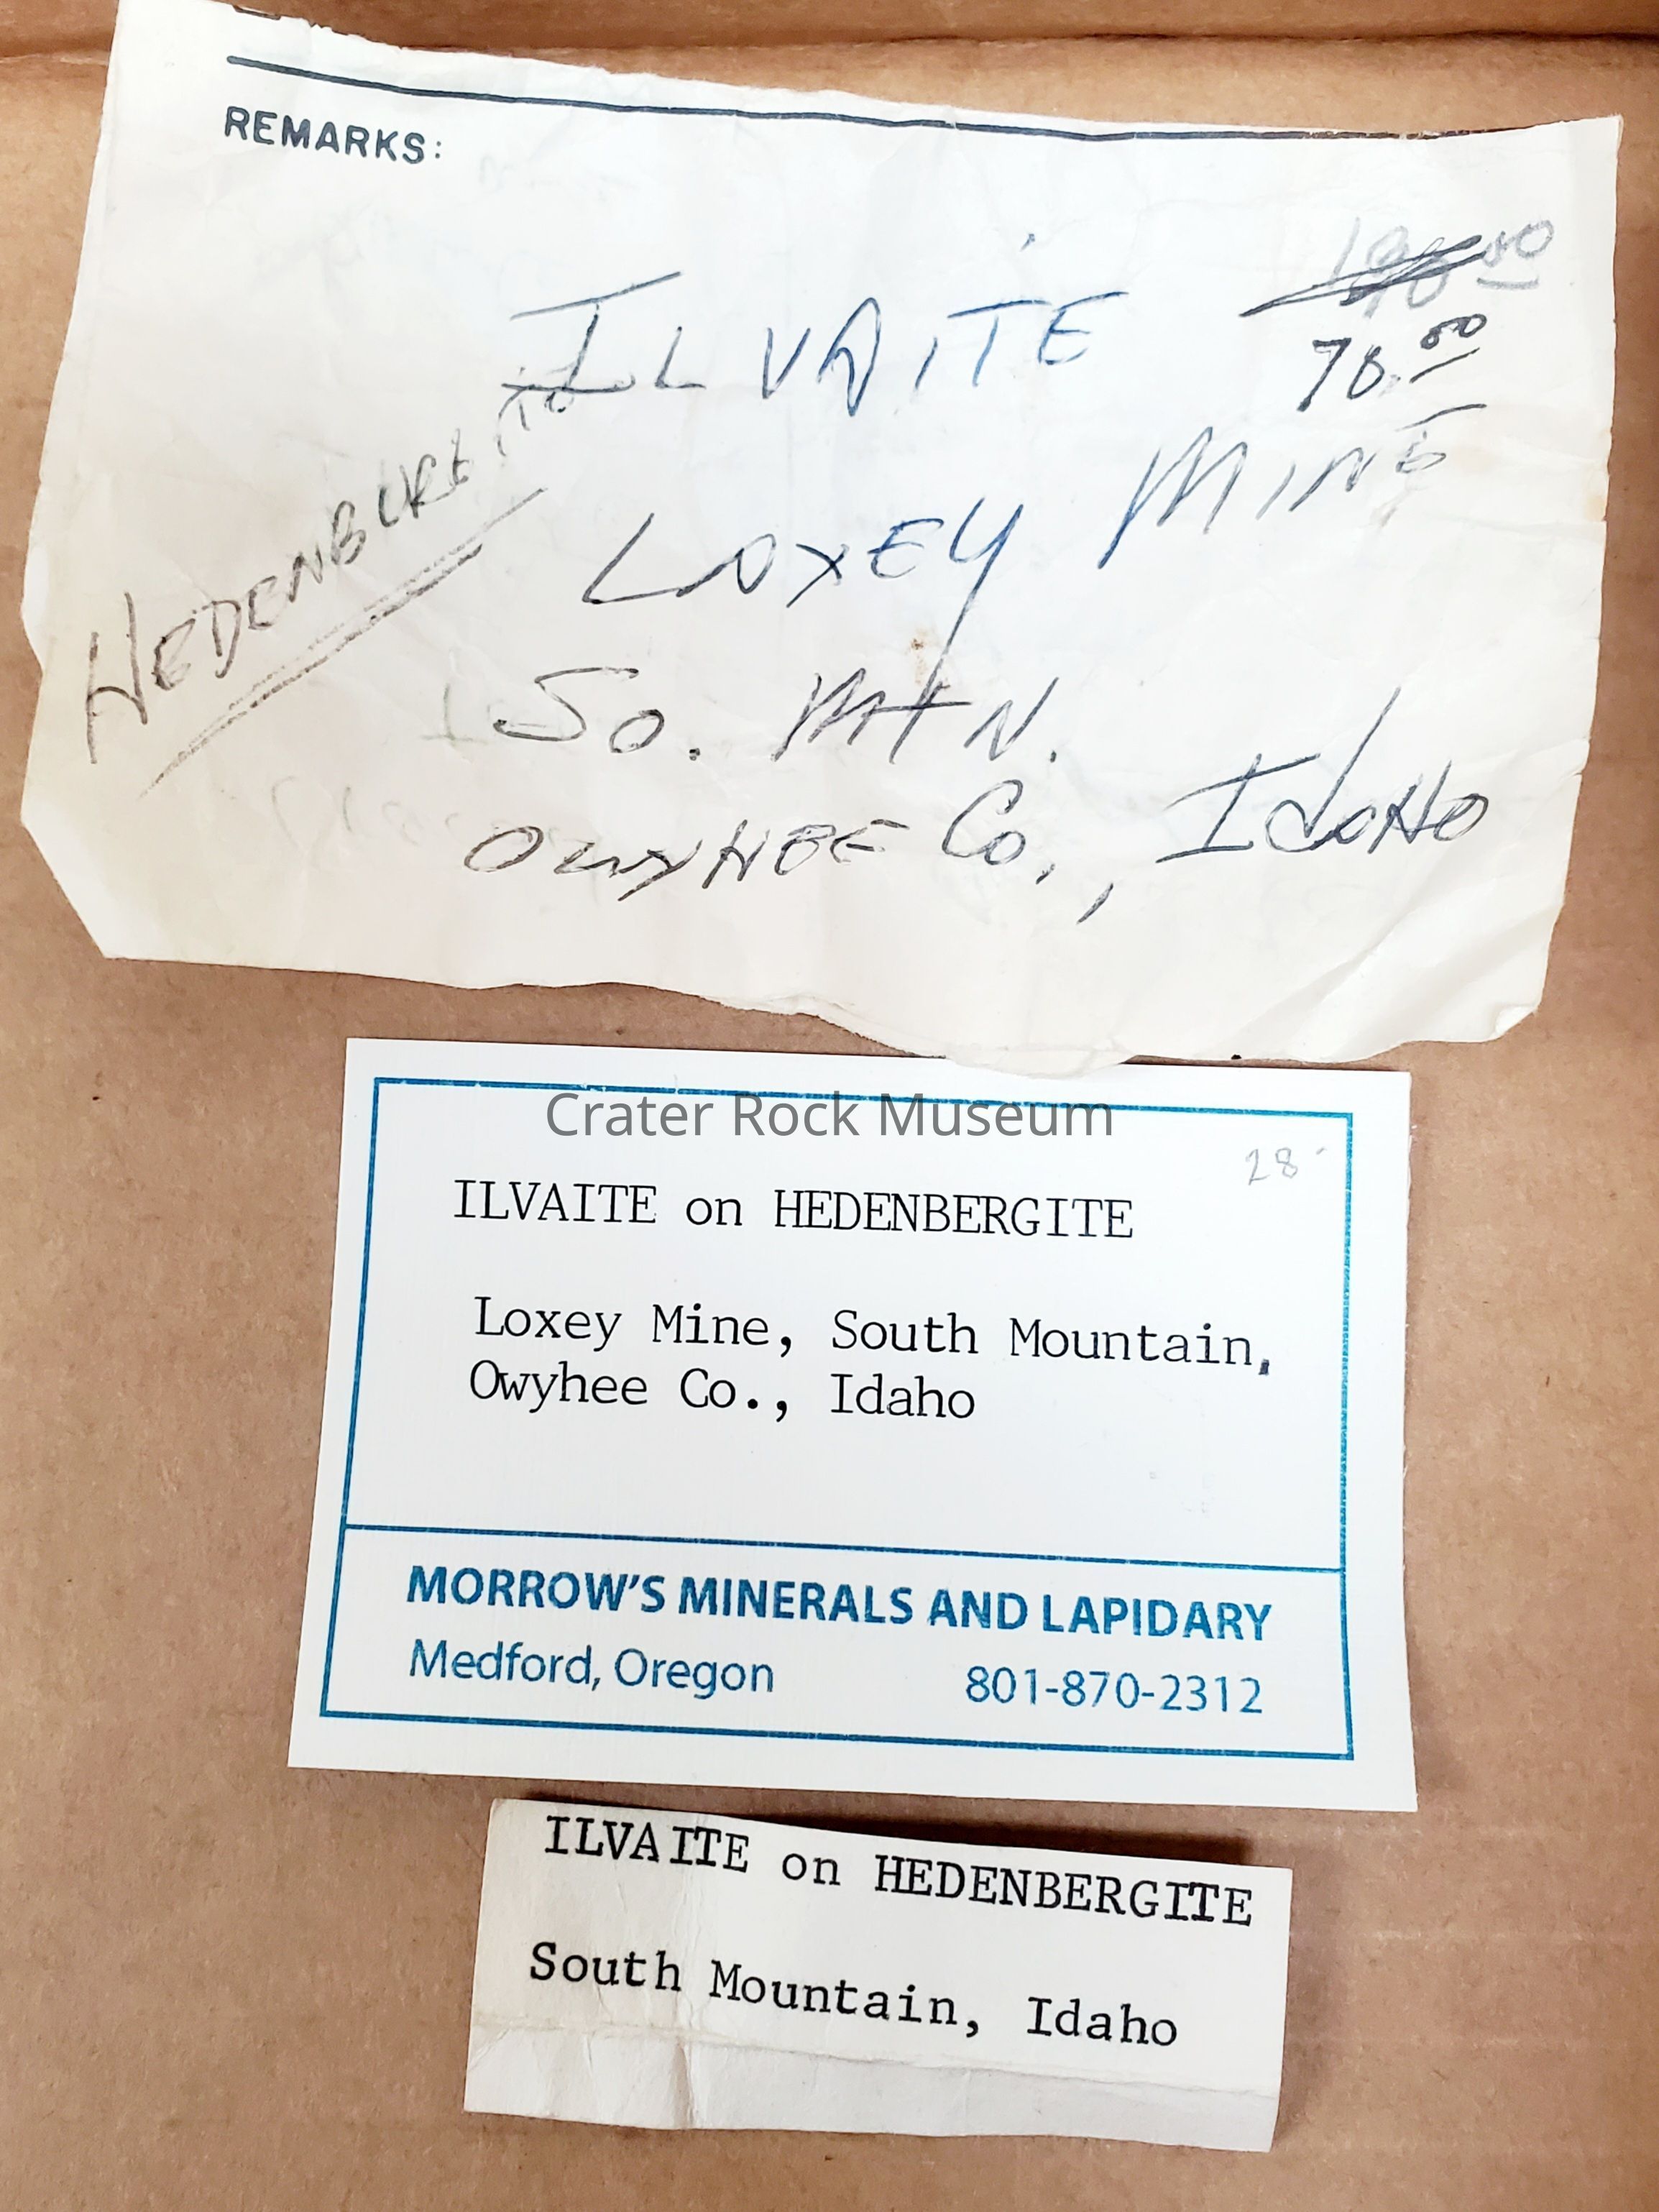 REMARKS:
ILVAITE
78.00
HEDENBURGITE
LOXEY MINE
SO. MTN.
OWYHEE Co., IdAHO
Crater Rock Museum
28-
ILVAITE on HEDENBERGITE
Loxey Mine, South Mountain,
Owyhee Co., Idaho
MORROW'S MINERALS AND LAPIDARY
Medford, Oregon 801-870-2312
ILVAITE on HEDENBERGITE
South Mountain, Idaho